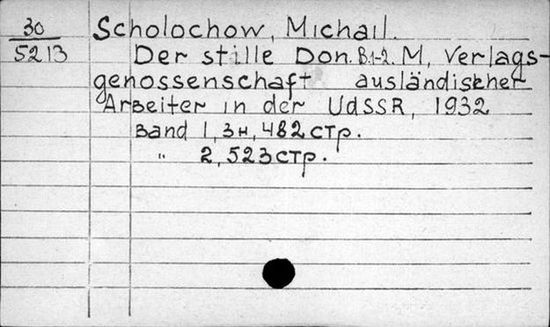 30
5213
Scholochow, Michail.
Der stille Don. B.1-2. M, Verlags-
genossenschaft ausländischer
Arbeiter in der UdSSR, 1932
Band 1, 3н, 482 стр.
" 2, 523 стр.